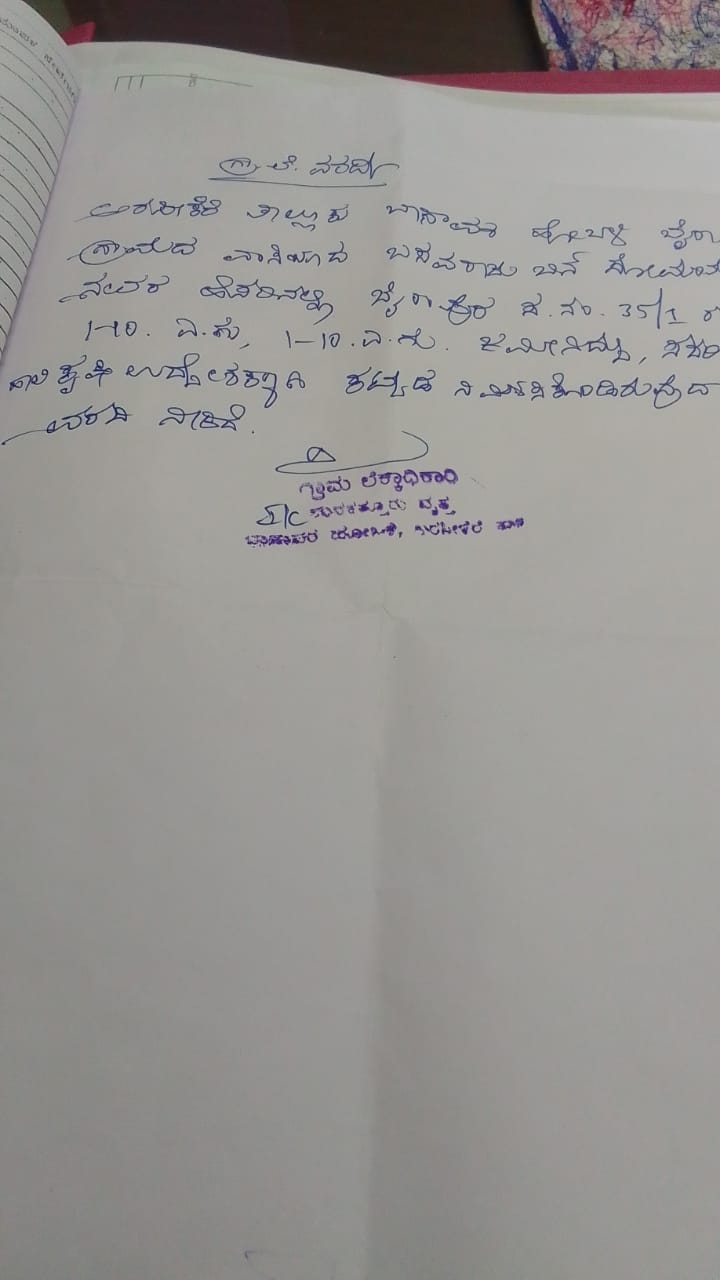 ಗ್ರಾ.ಲೆ. ವರದಿ
ಅರಸೀಕೆರೆ ತಾಲ್ಲೂಕು ಬಾಣಾವರ ಹೋಬಳಿ
ಗ್ರಾಮದ ವಾಸಿಯಾದ ಬಸವರಾಜು ಬಿನ್
ರವರ ಹೆಸರಿನಲ್ಲಿ ಸ.ನಂ. 35/1 ರ
1-10. ಎ.ಗು, 1-10.ಎ.ಗು. ಜಮೀನಿದ್ದು,
ಕೃಷಿ ಉದ್ದೇಶಕ್ಕಾಗಿ ಕಟ್ಟಡ ನಿರ್ಮಿಸಿಕೊಂಡಿರುವುದಾ
ವರದಿ ನೀಡಿದೆ.
ಗ್ರಾಮ ಲೆಕ್ಕಾಧಿಕಾರಿ
ವೃತ್ತ
ಬಾಣಾವರ ಹೋಬಳಿ, ಅರಸೀಕೆರೆ ತಾ||